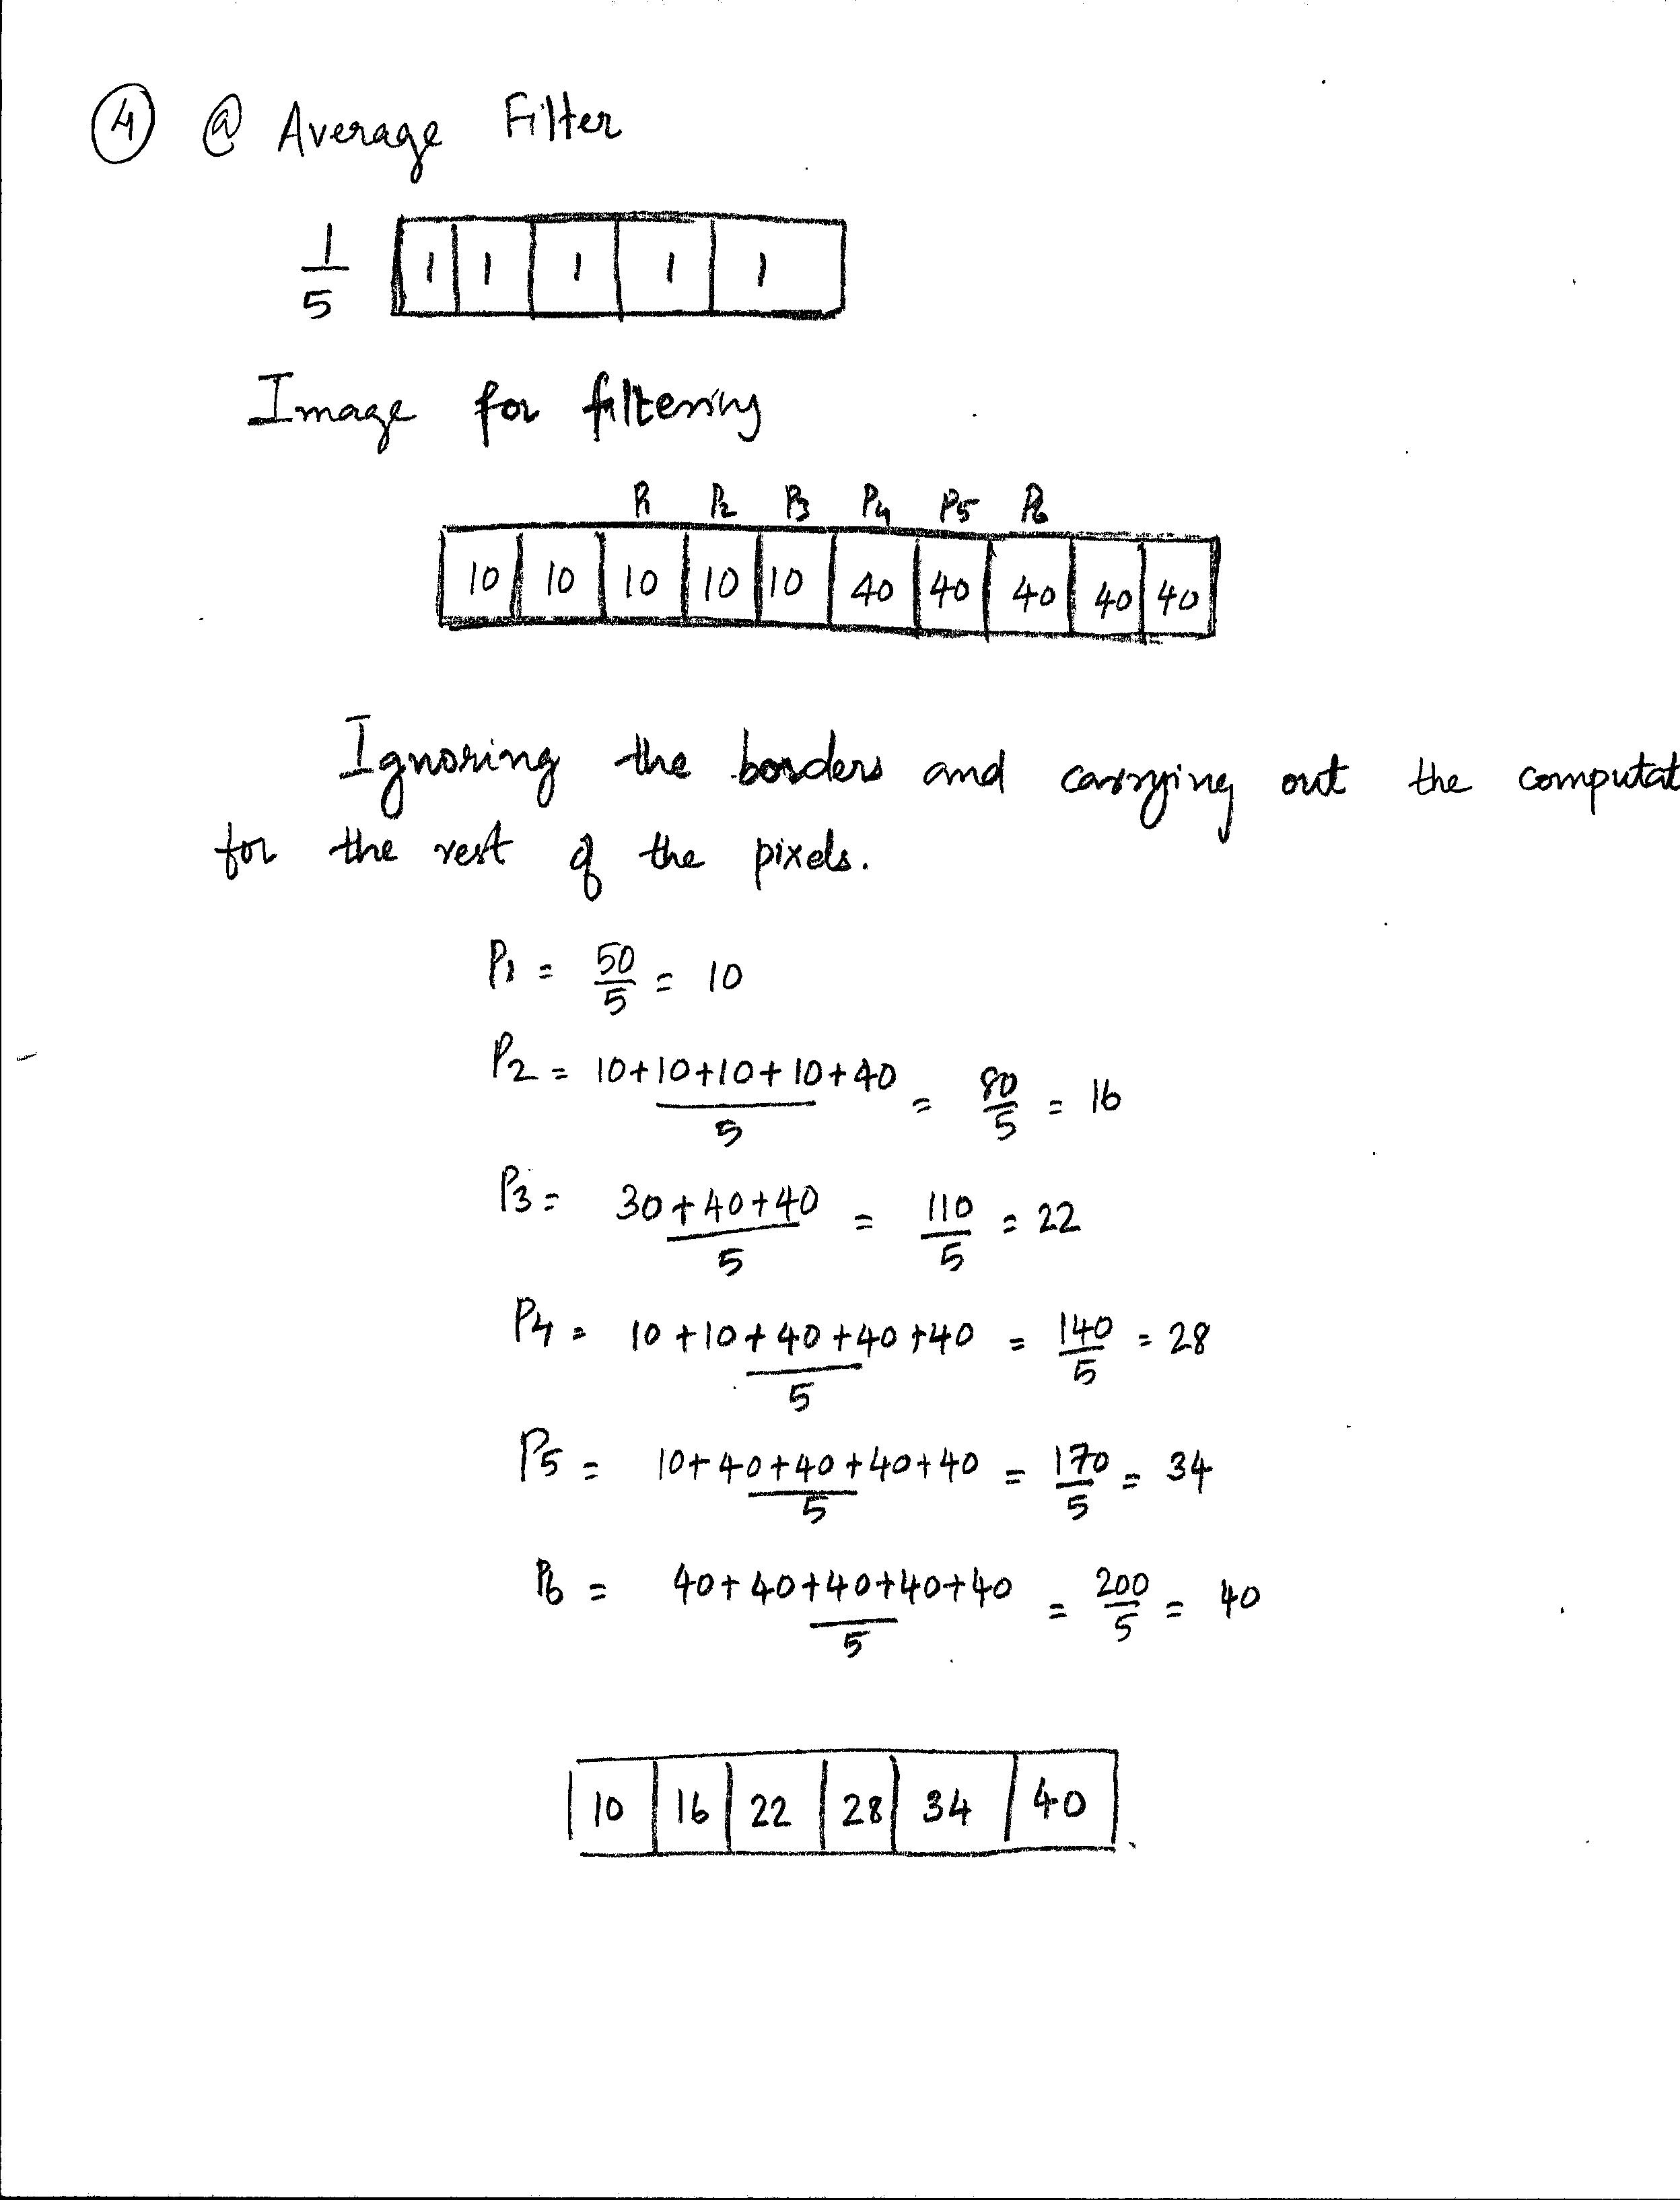 4 a Average Filter
1/5 1 1 1 1 1
Image for filtering
P1 P2 P3 P4 P5 P6
10 10 10 10 10 40 40 40 40 40
Ignoring the borders and carrying out the computat
for the rest of the pixels.
P1 = 50/5 = 10
P2 = 10+10+10+10+40/5 = 80/5 = 16
P3 = 30+40+40/5 = 110/5 = 22
P4 = 10+10+40+40+40/5 = 140/5 = 28
P5 = 10+40+40+40+40/5 = 170/5 = 34
P6 = 40+40+40+40+40/5 = 200/5 = 40
10 16 22 28 34 40